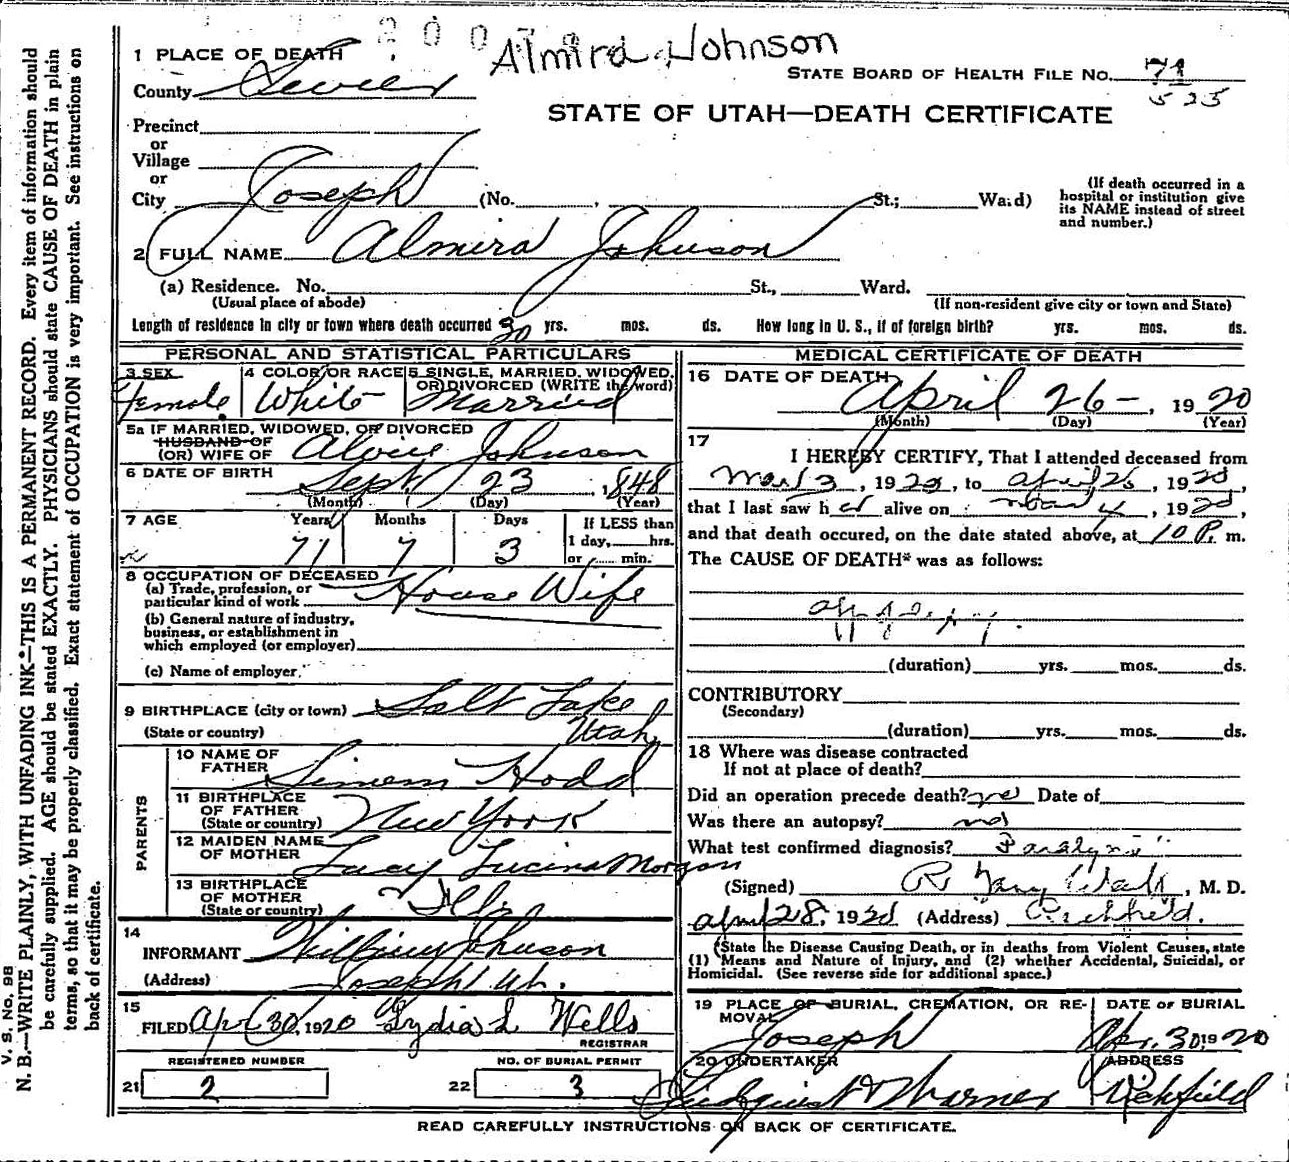 Almira Johnson
1 PLACE OF DEATH
STATE BOARD OF HEALTH FILE No. 71
525
County Sevier
STATE OF UTAH—DEATH CERTIFICATE
Precinct
or
Village
or
City Joseph (No. , St.; Ward)
(If death occurred in a
hospital or institution give
its NAME instead of street
and number.)
2 FULL NAME Almira Johnson
(a) Residence. No. St., Ward.
(Usual place of abode) (If non-resident give city or town and State)
Length of residence in city or town where death occurred 30 yrs. mos. ds. How long in U. S., if of foreign birth? yrs. mos. ds.
PERSONAL AND STATISTICAL PARTICULARS
3 SEX Female
4 COLOR OR RACE White
5 SINGLE, MARRIED, WIDOWED,
OR DIVORCED (WRITE the word)
Married
5a IF MARRIED, WIDOWED, OR DIVORCED
HUSBAND OF
(OR) WIFE OF Johnson
6 DATE OF BIRTH Sept 23, 1848
(Month) (Day) (Year)
7 AGE Years Months Days If LESS than
1 day, hrs.
or min.
71 7 3
8 OCCUPATION OF DECEASED
(a) Trade, profession, or
particular kind of work House Wife
(b) General nature of industry,
business, or establishment in
which employed (or employer)
(c) Name of employer
9 BIRTHPLACE (city or town) Salt Lake
(State or country) Utah
PARENTS
10 NAME OF
FATHER Simeon
11 BIRTHPLACE
OF FATHER
(State or country) New York
12 MAIDEN NAME
OF MOTHER Lucy Lucina Morgan
13 BIRTHPLACE
OF MOTHER
(State or country) Ills
14
INFORMANT Johnson
(Address) Joseph Ut.
15
FILED Apr 30, 1920 Lydia L Wells
REGISTRAR
REGISTERED NUMBER NO. OF BURIAL PERMIT
21 2 22 3
MEDICAL CERTIFICATE OF DEATH
16 DATE OF DEATH April 26-, 1920
(Month) (Day) (Year)
17
I HEREBY CERTIFY, That I attended deceased from
Mar 3, 1920, to April 26, 1920,
that I last saw her alive on 4, 1920,
and that death occured, on the date stated above, at 10 P. m.
The CAUSE OF DEATH* was as follows:
(duration) yrs. mos. ds.
CONTRIBUTORY
(Secondary)
(duration) yrs. mos. ds.
18 Where was disease contracted
If not at place of death?
Did an operation precede death? no Date of
Was there an autopsy? no
What test confirmed diagnosis? Paralysis
(Signed) R , M. D.
April 28, 1920 (Address) Richfield.
(State the Disease Causing Death, or in deaths from Violent Causes, state
(1) Means and Nature of Injury, and (2) whether Accidental, Suicidal, or
Homicidal. (See reverse side for additional space.)
19 PLACE OF BURIAL, CREMATION, OR RE-
MOVAL Joseph
DATE OF BURIAL
Apr. 30, 1920
20 UNDERTAKER
ADDRESS
Richfield
READ CAREFULLY INSTRUCTIONS ON BACK OF CERTIFICATE.
V. S. No. 98
N. B.—WRITE PLAINLY, WITH UNFADING INK—THIS IS A PERMANENT RECORD. Every item of information should
be carefully supplied. AGE should be stated EXACTLY. PHYSICIANS should state CAUSE OF DEATH in plain
terms, so that it may be properly classified. Exact statement of OCCUPATION is very important. See instructions on
back of certificate.